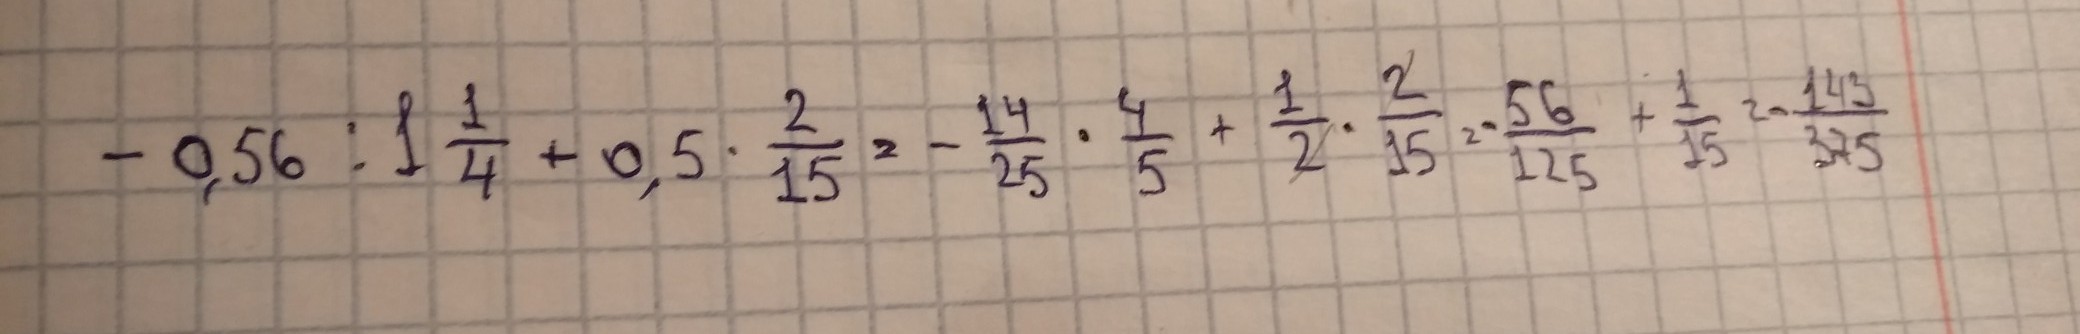 - 0,56 : 1 1/4 + 0,5 · 2/15 = - 14/25 · 4/5 + 1/2 · 2/15 = - 56/125 + 1/15 = - 143/375